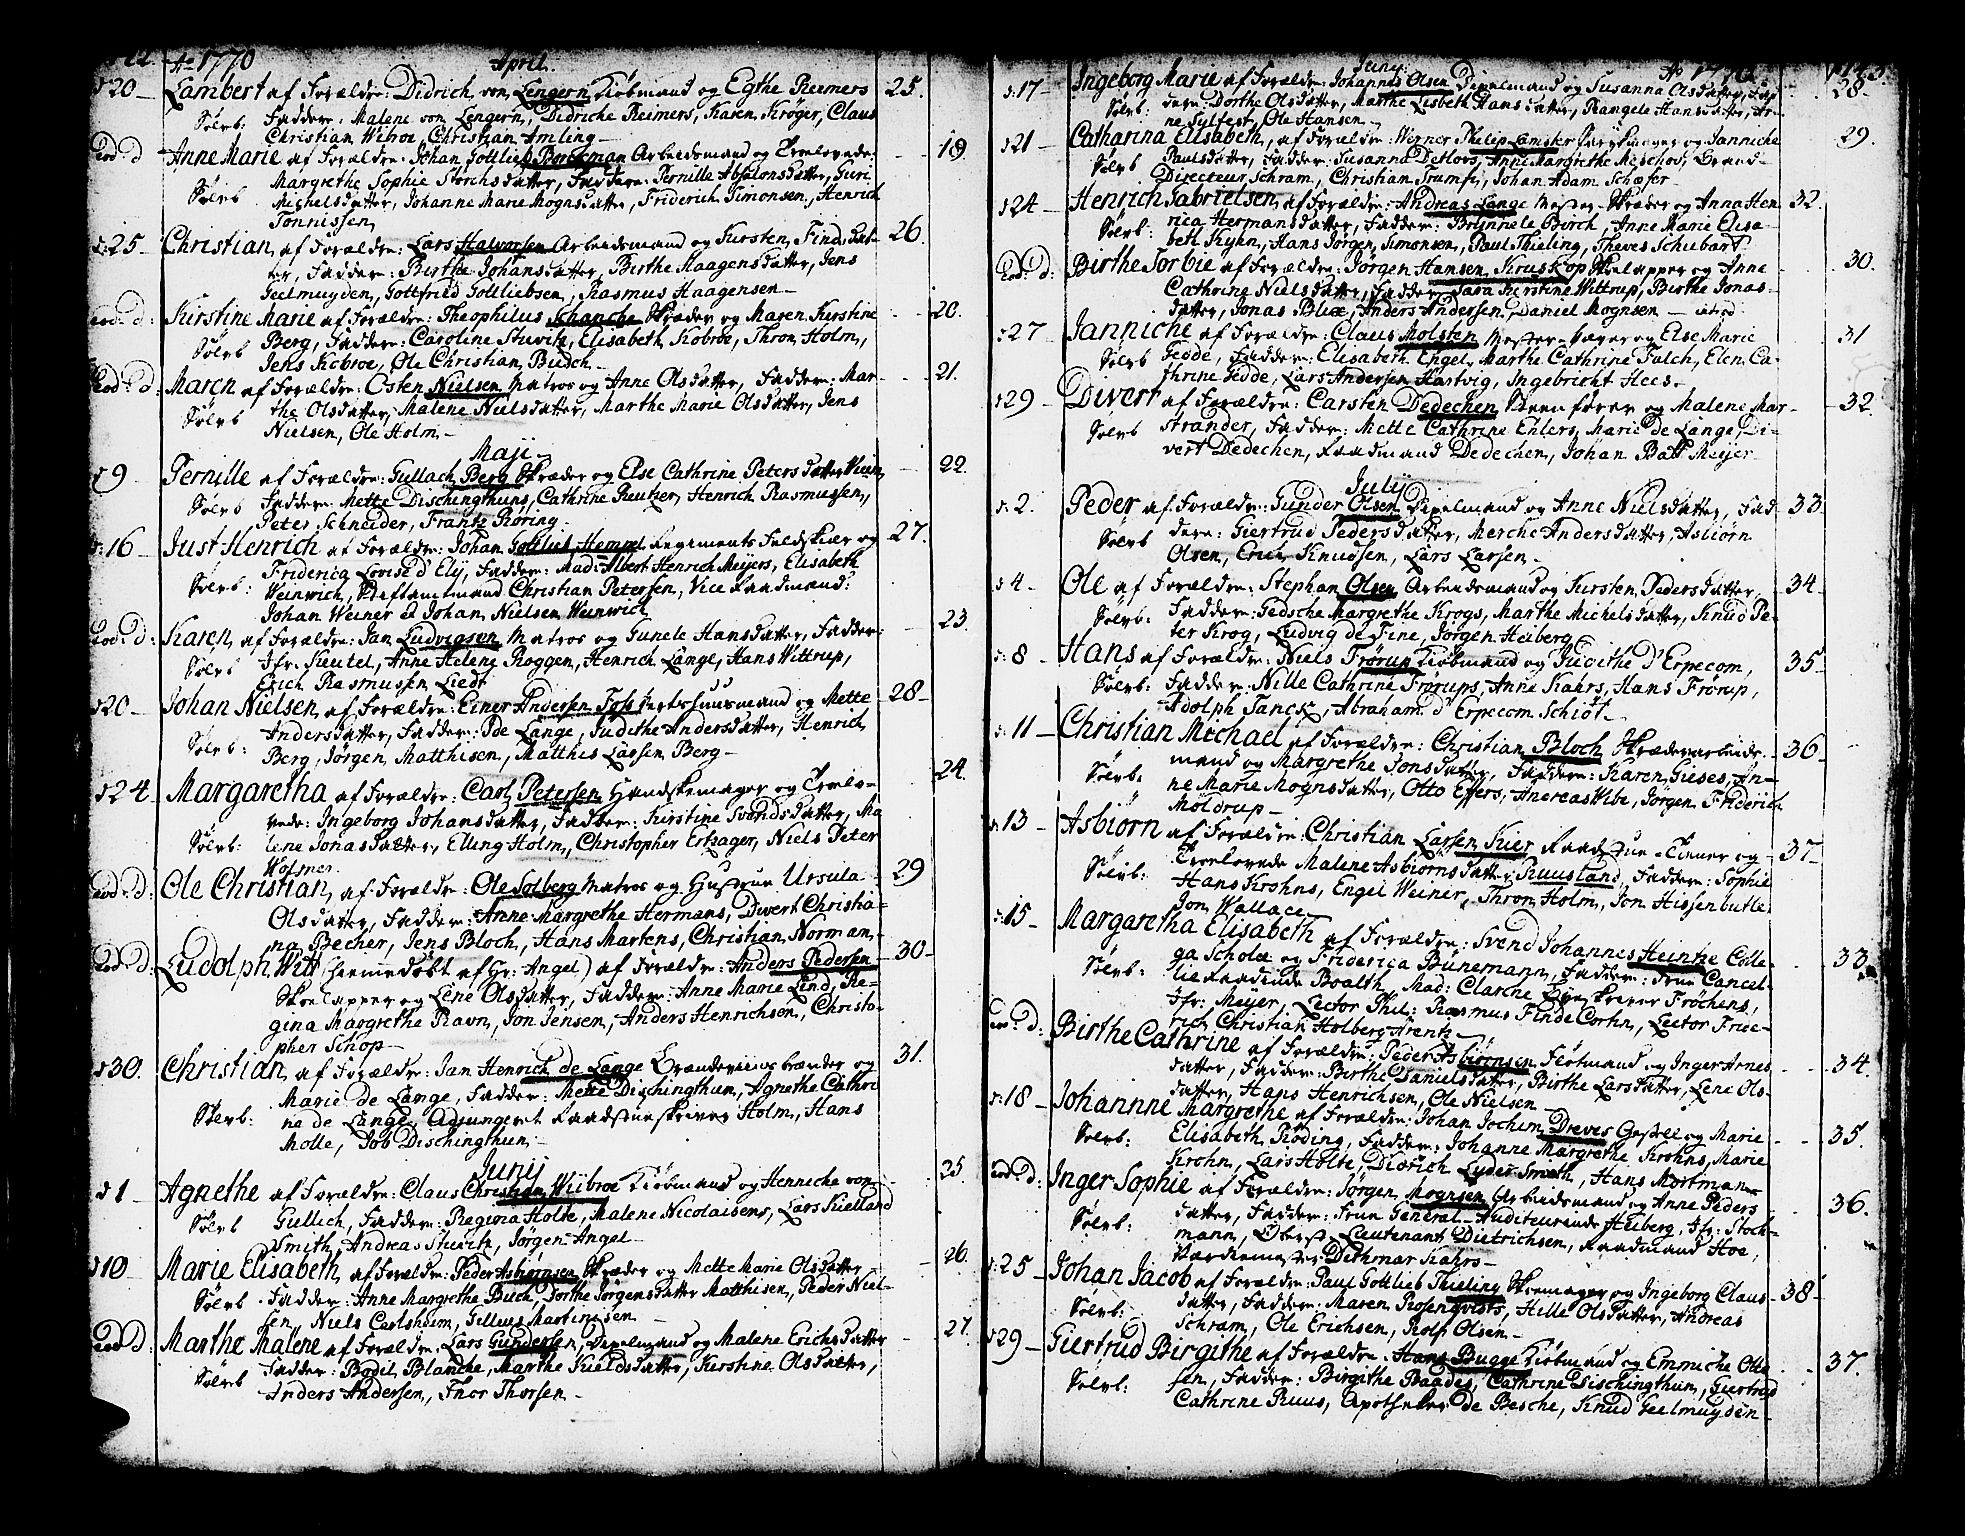 Ao 1770
April.
d 20 Lambert af Forældre: Didrich von Lengern Kiøbmand og Egthe Reimers 25.
Sølvb: Faddere: Malene von Lengern, Didriche Reimers, Karen Krøger, Claus
Christian Wibroe, Christian Amling
Eod: d Anne Marie af Forældre: Johan Gottlieb Borckman Arbeidsmand og Trolovede: 19
Margrethe Sophie Storchsdatter, Faddere: Pernille Absalonsdatter, Guri
Sølvb Michelsdatter, Johanne Marie Mognsdatter, Friderich Simonsen, Henrich
Tonnissen
d: 25 Christian af Forældre: Lars Halvorsen Arbeidsmand og Kirsten Findsdat- 26.
ter, Faddere: Birthe Johansdatter, Birthe Haagensdatter, Jens
Geelmuyden, Gottfried Gottliebsen, Rasmus Haagensen
Eod: d: Kirstine Marie af Forældre: Theophilus Schanche Skræder og Maren Kirstine 20.
Sølvb Berg, Faddere: Caroline Stuvitz, Elisabeth Kobroe, Thron Holm,
Jens Kobroe, Ole Christian Budch
Eod: d: Maren af Forældre: Osten Nielsen Matros og Anne Olsdatter, Faddere: Mar- 21.
Sølvb the Olsdatter, Malene Nielsdatter, Marthe Marie Olsdatter, Jens
Nielsen, Ole Holm
Maji
d 9 Pernille af Forældre: Gullach Berg Skræder og Else Cathrine Petersdatter 22
Sølvb Faddere Mette Dischingthuns, Cathrine Reutzer, Henrich Rasmussen,
Peter Schneider, Frantz Røring
d: 16 Just Henrich af Forældre: Johan Gottlieb Hempel Regiments Feldskiær og 27.
Friderica Lovise d' Ely, Faddere: Mad: Albert Henrich Meyers, Elisabeth
Sølvb: Weinwich, Stiftamtmand Christian Petersen, Vice Raadmand
Johan Weiner et Johan Nielsen Weinwich
Eod: d: Karen af Forældre: Jan Ludvigsen Matros og Gunele Hansdatter, Faddere: 23
Sølvb Jfr: Keutel, Anne Helene Roggen, Henrich Lange, Hans Wittrup,
Erich Rasmussen Lied
d 20 Johan Nielsen af Forældre: Einer Andersen og Mette 28
Andersdatter, Faddere: Ide Lange, Judithe Andersdatter, Henrich
Sølvb: Berg, Jørgen Matthisen, Matthis Larsen Berg
d 24 Margaretha af Forældre: Carl Petersen Handskemager og Trolo- 24.
vede: Ingeborg Johansdatter, Faddere: Kirstine Svendsdatter, Ma
Sølvb: lene Jonasdatter, Ellung Holm, Christopher Erhager, Niels Peter
Holmer
Eod: d: Ole Christian af Forældre: Ole Solberg Matros og Hustrue Ursula 29
Olsdatter, Faddere: Anne Margrethe Hermans, Divert Christia-
na Becher, Jens Bloch, Hans Martens, Christian Norman
Eod: d: Ludolph Witt (hiemmedøbt af Hr: Angel) af Forældre: Anders Pedersen 30
Skoelapper og Lene Olsdatter, Faddere: Anne Marie Lind, Re-
gina Margrethe Ravn, Jon Jensen, Anders Henrichsen, Christo-
pher Schop
d 30. Christian af Forældre: Jan Henrich de Lange Brændeviinsbrænder og 31.
Marie de Lange, Faddere: Mette Dischingthun, Agnethe Cathri
Sølvb: ne de Lange, Adjungeret Raadstueskriver Holm, Hans
Molle, Job Dischingthun
Junij
d 1 Agnethe af Forældre: Claus Christian Wiibroe Kiøbmand og Henniche von 25.
Sølvb Gullich, Faddere: Regiona Holte, Malene Nicolaisens, Lars Kielland
Smith, Andreas Stuvitz, Jørgen Angel
d 10 Marie Elisabeth af Forældre: Peder Asbiørnsen Skræder og Mette Marie Olsdatter 26.
Sølvb Faddere: Anne Margrethe Buch, Dorthe Jørgensdatter Matthisen, Peder Niel-
sen, Niels Carlsheim, Gillius Martinussen
Eod: D: Marthe Malene af Forældre: Lars Gundersen, Deelmand og Malene Erichsdatter 27.
Sølvb Faddere: Bodil Blanche, Marthe Kieldsdatter, Kirstine Olsdatter,
Anders Andersen, Thor Thorsen
Juny Ao 1770
d: 17 Ingeborg Marie af Forældre Johannes Olsen Deelmand og Susanna Olsdatter, Fad 28.
Sølvb: dere: Dorthe Olsdatter, Marthe Lisbeth Hansdatter, Rangele Hansdatter, Ar-
ne Sylfest, Ole Hansen
d 21 Catharina Elisabeth, af Forældre: Werner Philip Lamster og Janniche 29.
Sølvb Paulsdatter, Faddere: Susanna Detlovs, Anne Margrethe Meschov, Brand-
Directeur Schram, Christian Trumf, Johan Adam Schæfer
d 24 Henrich Gabrielsen af Forældre: Andreas Lange Mester-Skræder og Anna Hen 32.
Sølvb: rica Hermansdatter, Faddere: Brynnele Birch, Anne Marie Elisa-
beth Kyhn, Hans Jørgen Simonsen, Paul Thieling, Theves Schubart
Eod: d: Birthe Sorbie af Forældre: Jørgen Hansen Kruskop Skoelapper og Anne 30.
Cathrine Nielsdatter, Faddere Sara Kirstine Wittrup, Birthe Jonas-
datter, Jonas Blix, Anders Andersen, Daniel Mognsen
d: 27 Janniche af Forældre: Claus Molsten Mester-Væver og Else Marie 31
Sølvb Gedde, Faddere: Elisabeth Engel, Marthe Cathrine Falch, Elen Ca-
thrine Gedde, Lars Andersen Hartvig, Ingebricht Hees
d 29 Divert af Forældre: Carsten Dedechen og Malene Mar 32.
Sølvb strander, Faddere: Mette Cathrine Ehlers, Marie de Lange, Di-
vert Dedechen, Raadmand Dedechen, Johan Batt Meyer
July
d: 2. Peder af Forældre: Gunder Olsen Deelmand og Anne Nielsdatter, Fad 33
Sølvb dere: Giertrud Pedersdatter, Merche Andersdatter, Asbiørn
Olsen, Erich Knudsen, Lars Larsen
d 4 Ole af Forældre: Stephan Olsen Arbeidsmand og Kirsten Pedersdatter, 34
Sølvb: Faddere: Gedsche Margrethe Krogs, Marthe Michelsdatter, Knud Pe-
ter Krog, Ludvig de Fine, Jørgen Heiberg
d: 8 Hans af Forældre: Niels Frørup Kiøbmand og Judithe d' Erpecom, 35
Sølvb: Faddere: Nille Cathrine Frørups, Anne Kahrs, Hans Frørup,
Adolph Tanck, Abraham d' Erpecom Schiøt
d: 11 Christian Michael af Forældre: Christian Bloch Skræderarbeids 36
Sølvb: mand og Margrethe Jonsdatter, Faddere: Karen Gieses, An-
ne Marie Mognsdatter, Otto Effers, Andreas Wibe, Jørgen Friderich
Möldrup
d: 13 Asbiørn af Forældre: Christian Larsen Kier Raadstue-Tiener og 37
Sølvb: Trolovede Malene Asbiørnsdatter Ruusland, Faddere: Sophie
Hans Krohns, Engel Weiner, Thron Holm, Jon Hissenbutle
Jon Wallace
d: 15 Margaretha Elisabeth af Forældre: Svend Johannes Heintze Colle- 33
Sølvb: ga Scholæ og Friderica Bünemann, Faddere: Frue Cancel-
lieraadinde Boalth, Mad: Clarche Byeskriver Fröchens,
Jfr: Meyer, Lector Phil: Rasmus Finde Corhn, Lector Fride-
rich Christian Holberg Arentz
Eod: d: Birthe Cathrine af Forældre: Peder Asbiørnsen Fløtmand og Inger Arnes 34.
datter, Faddere: Birthe Danielsdatter, Birthe Larsdatter, Lene Ols-
datter, Hans Henrichsen, Ole Nielsen
d: 18 Johannne Margrethe af Forældre: Johan Jochim Dreves Gesell og Marie 35.
Sølvb: Elisabeth Röding, Faddere: Johanne Margrethe Krohns, Marie
Krohn, Lars Holte, Didrich Lyder Smith, Hans Mortman
Eod: D: Inger Sophie af Forældre: Jørgen Mognsen Arbeidsmand og Anne Peders 36.
Sølvb: datter, Faddere: Frue General-Auditeurinde Heiberg, Jfr: Stock-
mann, Oberst-Lieutenant Dietrichsen, Raadmand Hoe,
Dithmar Kahrs
d: 25 Johan Jacob af Forældre: Paul Gottlieb Thieling Skoemager og Ingeborg Claus 38
Sølvb: datter, Faddere: Maren Rosenqvists, Hille Olsdatter, Andreas
Schram, Ole Erichsen, Rolf Olsen
d 29 Giertrud Birgithe af Forældre: Hans Bugge Kiøbmand og Emmiche Otte 37.
Sølvb: sen, Faddere: Birgithe Baades, Cathrine Dischingthun, Giertrud
Cathrine Ruus, Apotheker de Besche, Knud Geelmuyden